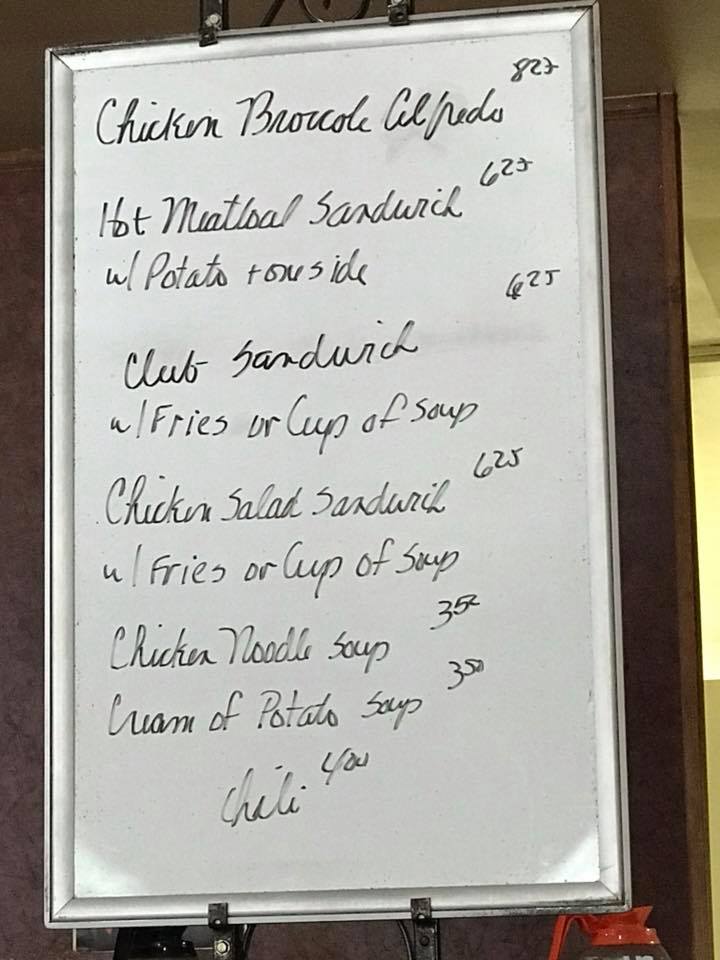 Chicken Broccole Alfredo 825
Hot Meatloaf Sandwich 625
w/ Potato + one side
Club Sandwich 625
w/ Fries or Cup of Soup
Chicken Salad Sandwich 625
w/ Fries or Cup of Soup
Chicken Noodle Soup 350
Cream of Potato Soup 350
Chili 400